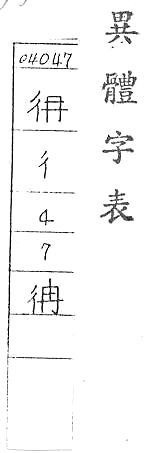 異體字表
04047
彳
4
7